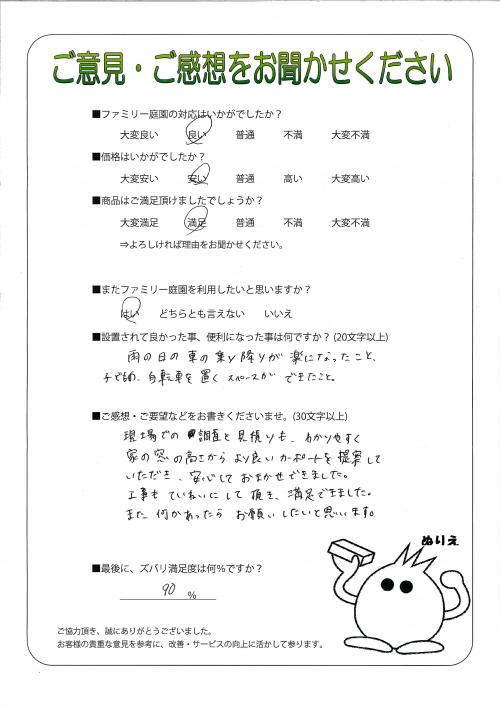 ご意見・ご感想をお聞かせください
■ファミリー庭園の対応はいかがでしたか？
大変良い 良い 普通 不満 大変不満
■価格はいかがでしたか？
大変安い 安い 普通 高い 大変高い
■商品はご満足頂けましたでしょうか？
大変満足 満足 普通 不満 大変不満
⇒よろしければ理由をお聞かせください。
■またファミリー庭園を利用したいと思いますか？
はい どちらとも言えない いいえ
■設置されて良かった事、便利になった事は何ですか？(20文字以上)
雨の日の車の乗り降りが楽になったこと、
自転車を置くスペースができたこと。
■ご感想・ご要望などをお書きくださいませ。(30文字以上)
現場での調査と見積りも、わかりやすく
家の窓の高さからより良いカーポートを提案して
いただき、安心しておまかせできました。
工事もていねいにして頂き、満足できました。
また何かあったらお願いしたいと思います。
ぬりえ
■最後に、ズバリ満足度は何％ですか？
90 ％
ご協力頂き、誠にありがとうございました。
お客様の貴重な意見を参考に、改善・サービスの向上に活かして参ります。